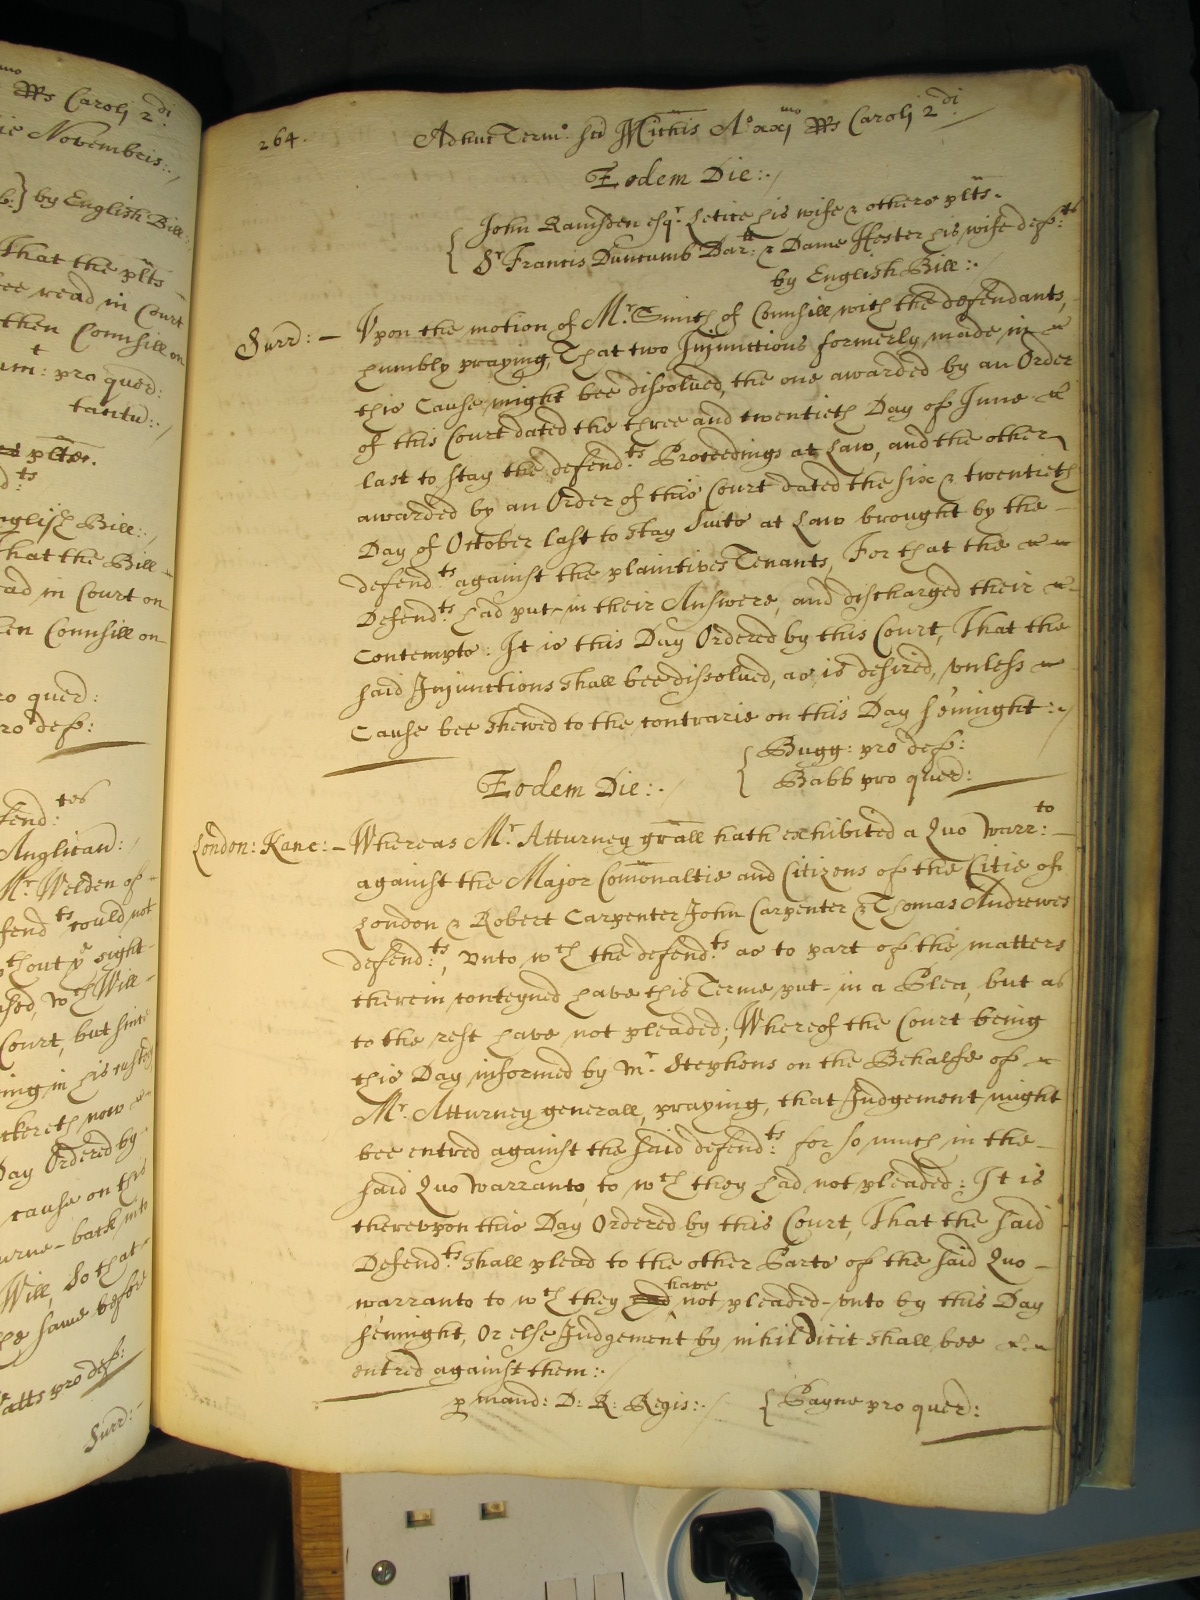 mo
RRs Caroli 2di
ie Novembris:./
b:} by English Bill:
That the plts
ee read in Court
then Counsill on
um: pro quer:
tantu:./
plts.
d:ts
nglish Bill:./
That the Bill
ad in Court on
en Counsill on
ro quer:
ro def:
fend:tes
Anglican:/
Mr Welden of
fendts could not
thout ye sight
used, wch Will
Court, but since
ing in his custod
ckereth now
Day Ordered by
cause on this
urne-back into
Will, So that
he same before
atts pro def:
Surr:
264.
Adhuc Term: Sci Michis Ao xximo RRs Caroli 2di./
Eodem Die:./
{ John Ramsden esqr. Letice his wife & others plts.
Sr Francis Duncumb Bartt: & Dame Hester his wife def:ts
by English Bill:.
Surr: - Vpon the motion of Mr. Smith of Counsill with the defendants,
humbly praying, That two Injunctions formerly made in
this Cause might bee dissolved, the one awarded by an Order
of this Court dated the three and twentieth Day of June
last to stay the defend:ts Proceedings at Law, and the other
awarded by an Order of this Court dated the six & twentieth
Day of October last to stay Suits at Law brought by the
defend:ts against the plaintives Tenants, For that the
Defend:ts had put-in their Answers, and discharged their
Contempts: It is this Day Ordered by this Court, That the
said Injunctions shall bee dissolved, as is desired, vnless
Cause bee shewed to the contrarie on this Day sennight:./
{ Bugg: pro def:
Babb pro quer:
Eodem Die:./
London: Kanc: - Whereas Mr Atturney grall hath exhibited a Quo Warr:to
against the Major Comonaltie and Citizens of the Citie of
London & Robert Carpenter John Carpenter & Thomas Andrewes
defend:ts, vnto wch the defend:ts as to part of the matters
therein conteyned have this Terme put-in a Plea, but as
to the rest have not pleaded; Whereof the Court being
this Day informed by Mr. Stephens on the Behalfe of
Mr. Atturney generall, praying, that Judgement might
bee entred against the said defend:ts for so much in the
said Quo Warranto, to wch they had not pleaded: It is
therevpon this Day Ordered by this Court, That the said
Defend:ts shall plead to the other Parts of the said Quo
warranto to wch they had have not pleaded-vnto by this Day
sennight, Or else Judgement by nihil dicit shall bee
entred against them:./
p mand: D: R: Regis:./ { Payne pro quer: